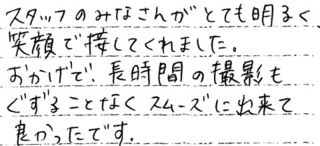 スタッフのみなさんがとても明るく、
笑顔で接してくれました。
おかげで、長時間の撮影も
ぐずることなくスムーズに出来て
良かったです。